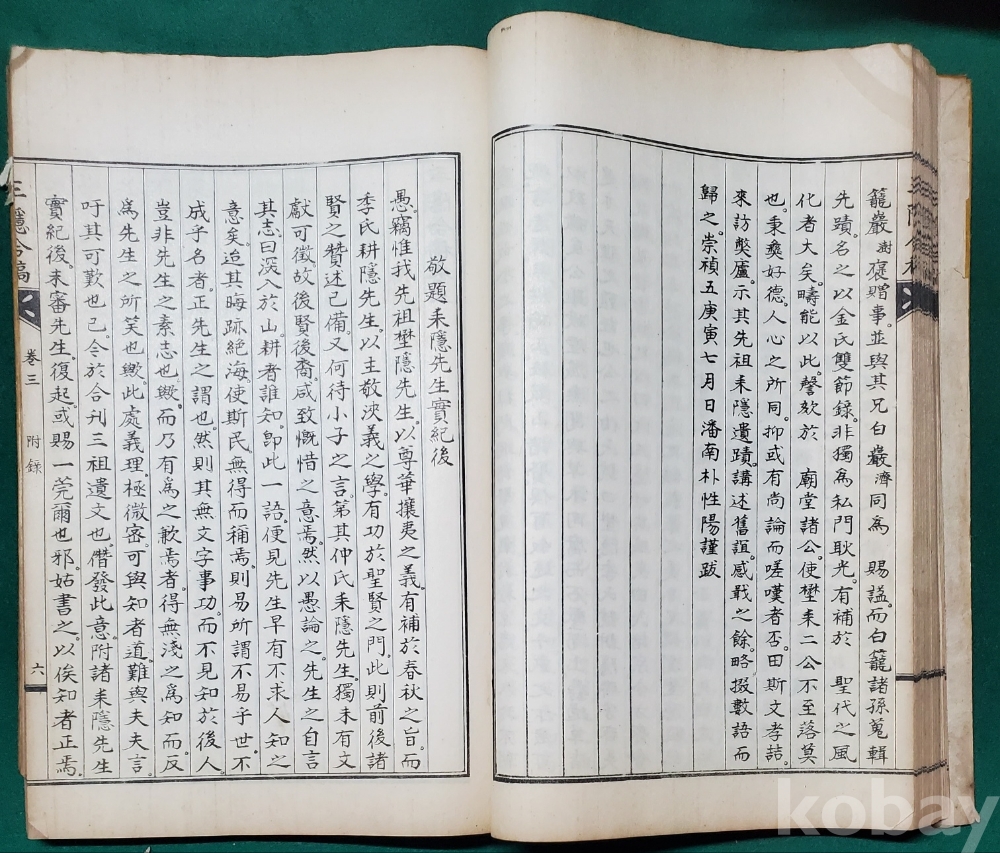 籠巖澍褒贈事。並與其兄白巖濟同爲 賜謚。而白籠諸孫蒐輯
先蹟。名之以金氏雙節錄。非獨爲私門耿光。有補於 聖代之風
化者大矣。疇能以此。謦欬於 廟堂諸公。使壄耒二公不至落莫
也。秉彝好德。人心之所同。抑或有尚論而嗟嘆者否。田斯文孝喆
來訪獘廬。示其先祖耒隱遺蹟。講述舊誼。感戢之餘。略掇數語而
歸之。崇禎五庚寅七月日潘南朴性陽謹跋
敬題耒隱先生實紀後
愚。竊惟我先祖壄隱先生。以尊華攘夷之義。有補於春秋之旨。而
季氏耕隱先生。以主敬決義之學。有功於聖賢之門。此則前後諸
賢之贊述已備。又何待小子之言。第其仲氏耒隱先生。獨未有文
獻可徵。故後賢後裔。咸致慨惜之意焉。然以愚論之。先生之自言
其志曰深入於山。耕者誰知。卽此一語。便見先生早有不求人知之
意矣。迨其晦跡絕海。使斯民。無得而稱焉。則易所謂不易乎世。不
成乎名者。正先生之謂也。然則其無文字事功。而不見知於後人。
豈非先生之素志也歟。而乃有爲之歉焉者。得無淺之爲知而反
爲先生之所笑也歟。此處義理極微密。可與知者道。難與夫夫言。
吁其可歎也已。今於合刊三祖遺文也。僭發此意。附諸耒隱先生
實紀後。未審先生。復起。或賜一莞爾也邪。姑書之。以俟知者正焉。
三隱合稿
卷三
附錄
六
三隱合稿
kobay